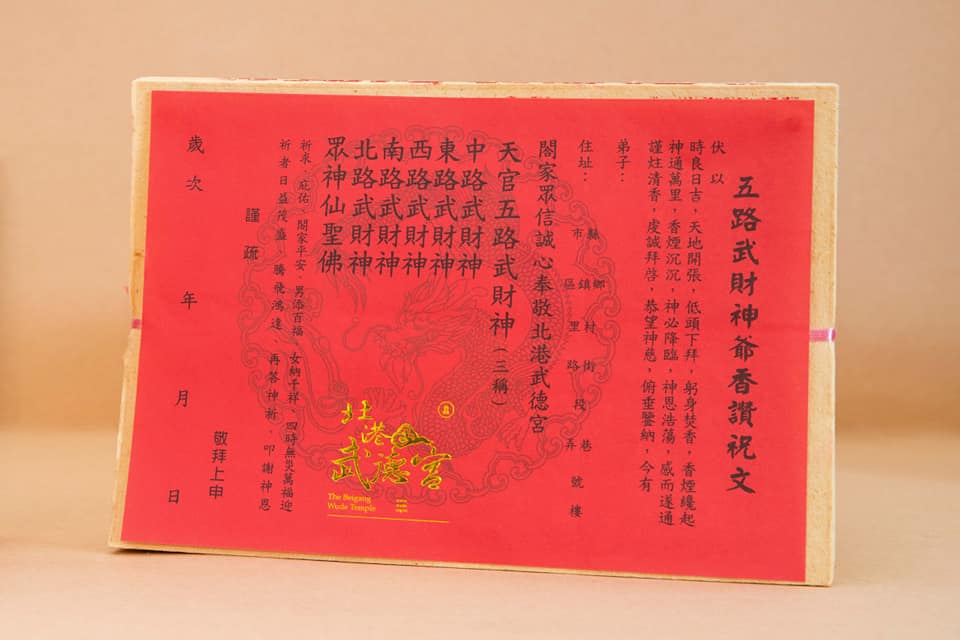 五路武財神爺香讚祝文
伏以
時良日吉，天地開張，低頭下拜，躬身焚香，香煙纔起
神通萬里，香煙沉沉，神必降臨，神恩浩蕩，感而遂通
謹炷清香，虔誠拜啓，恭望神慈，俯垂鑒納，今有
弟子：
住址：
縣市
鄉鎮區
村里
街路
段
巷弄
號
樓
閤家眾信誠心奉敬北港武德宮
天官五路武財神（三稱）
中路武財神
東路武財神
西路武財神
南路武財神
北路武財神
眾神仙聖佛
祈求、庇佑、閤家平安、男添百福 女納千祥、四時無災萬福迎
祈者日益茂盛、騰飛鴻達、再答神祈、叩謝神恩
謹疏
敬拜上申
歲次 年 月 日
北港
武德宮
The Beigang
Wude Temple